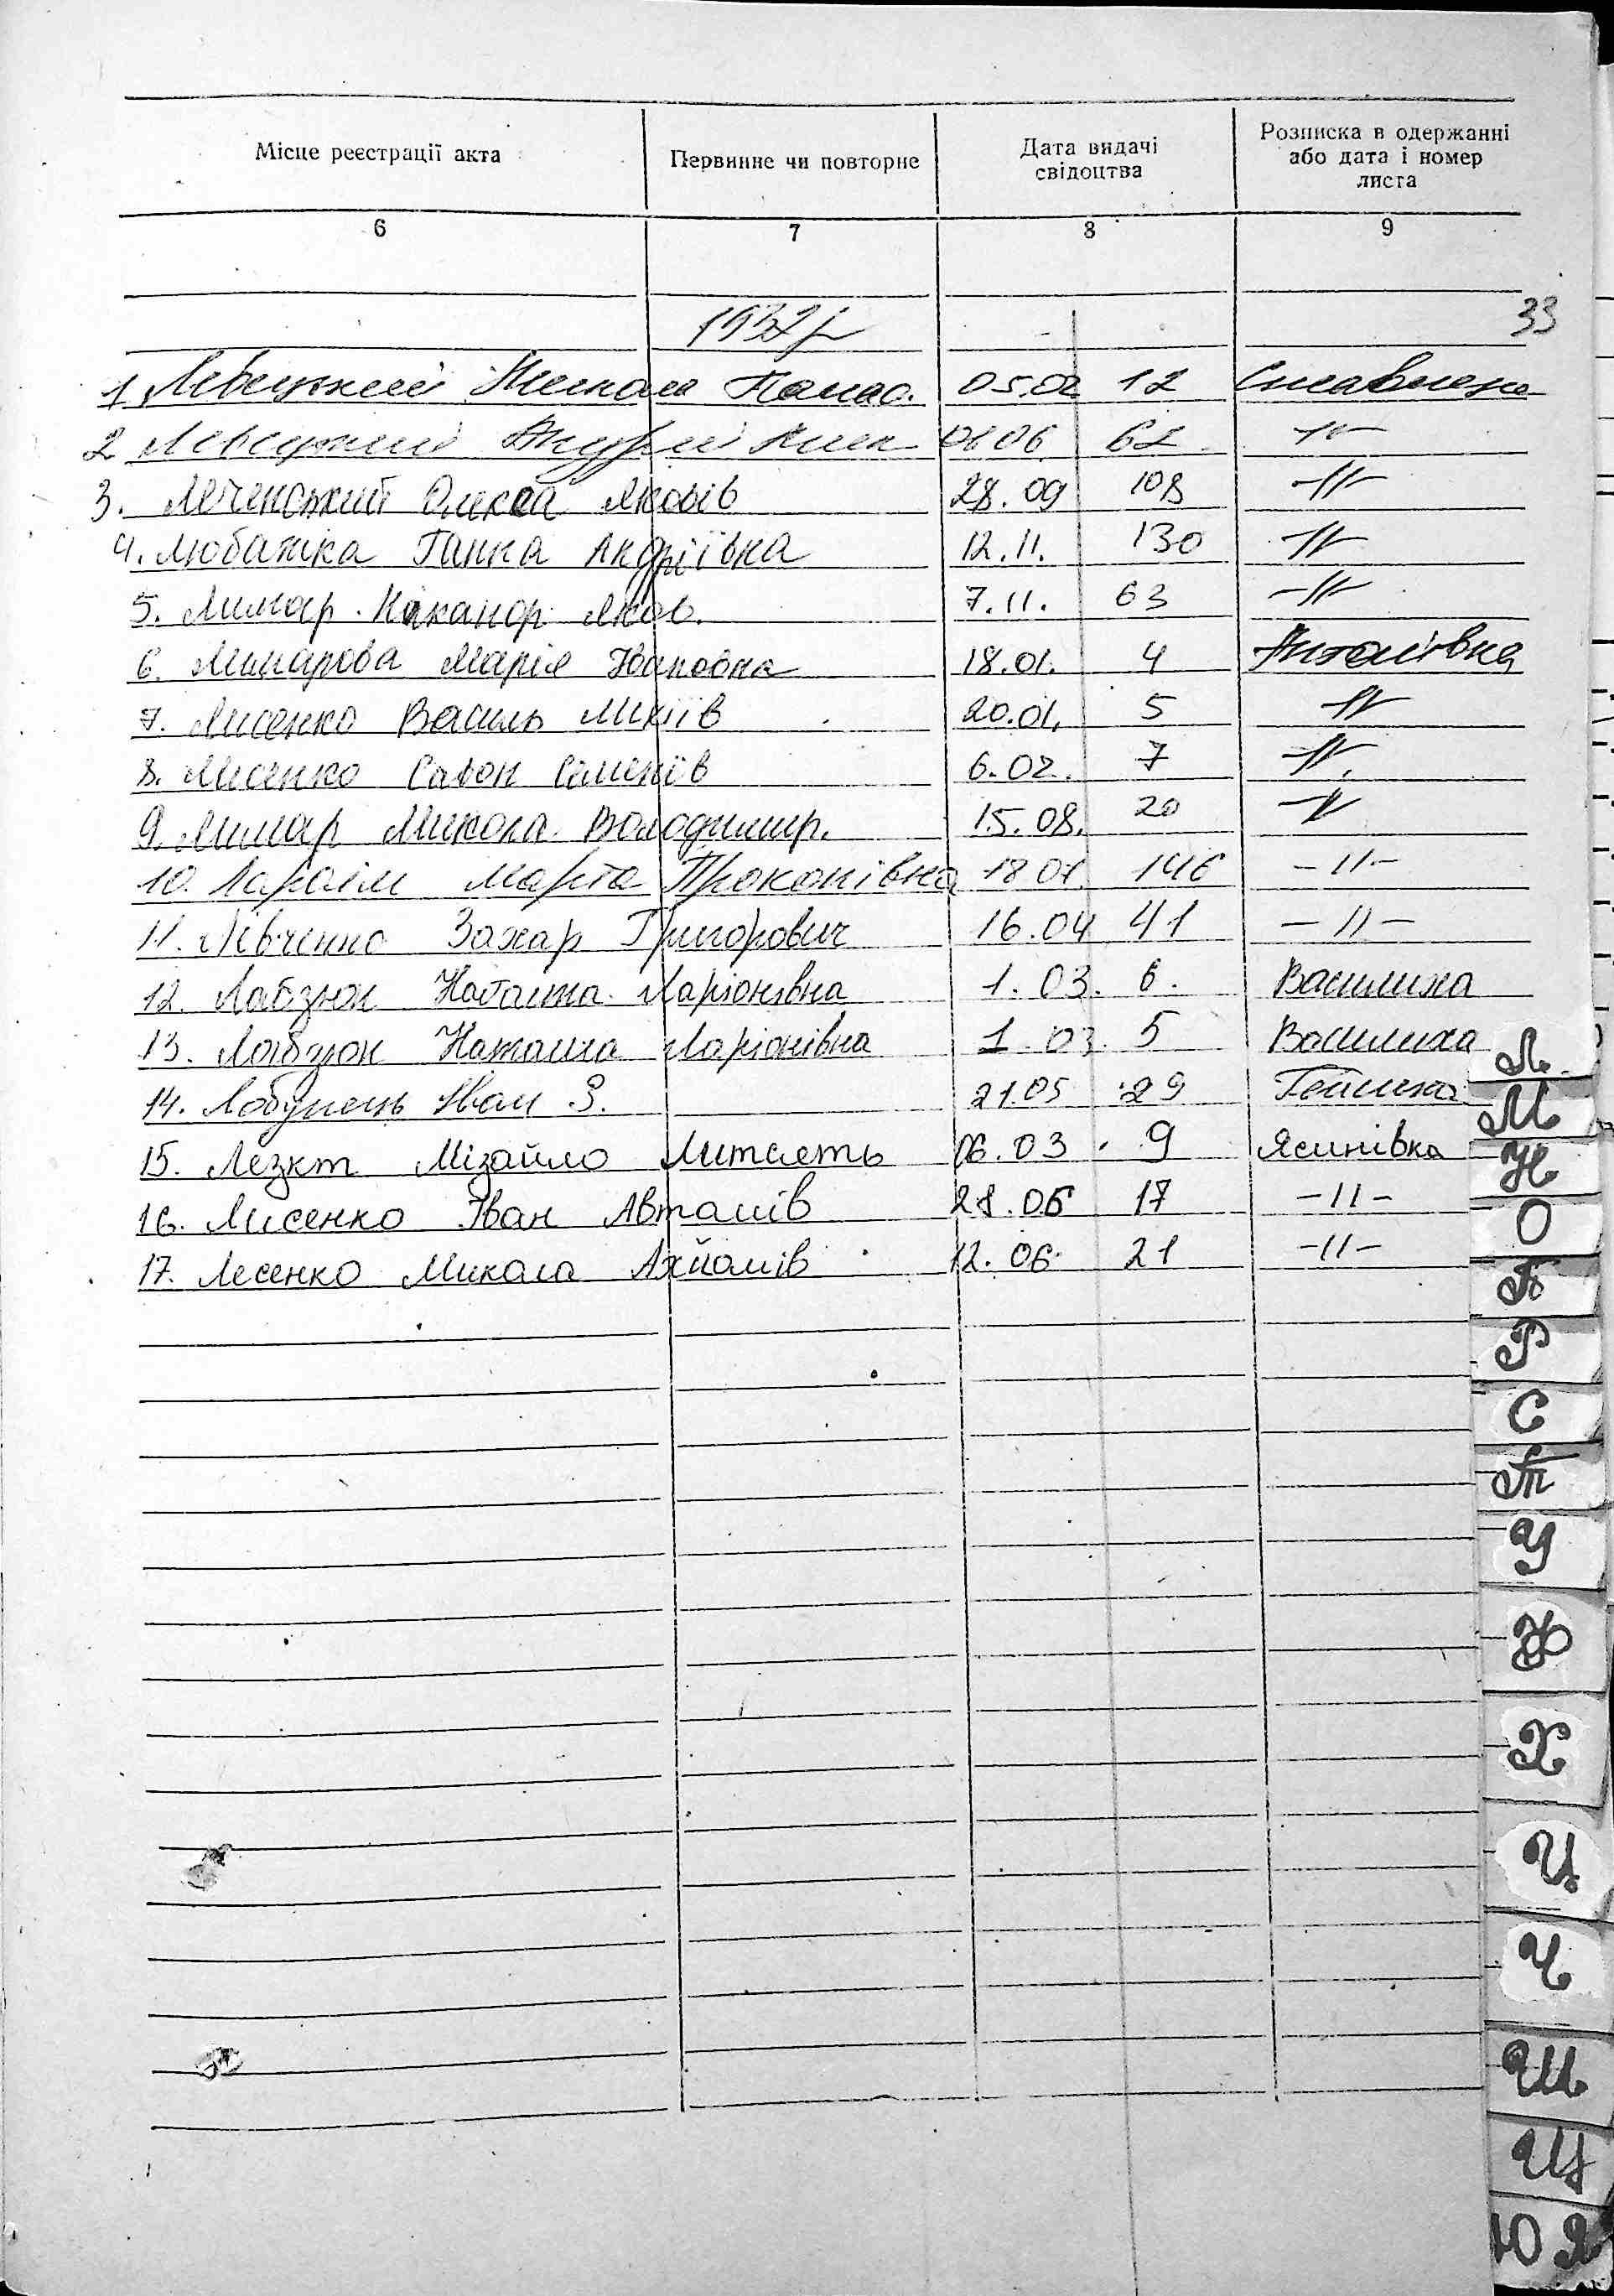 Місце реєстрації акта
Первинне чи повторне
Дата видачі
свідоцтва
Розписка в одержанні
або дата і номер
листа
6 7 8 9
33
1932р
1 Левицкий Панас. 05.02 12
2 Левицкий Андрий 01.06 62 -//-
3. Олекса Яковів 28.09 108 -//-
4. Любашка Ганна Андріївна 12.11. 130 -//-
5. Лимар Никанор Яков. 7.11. 63 -//-
6. Лимарова Марія Івановна 18.01. 4
7. Лисенко Василь 20.01. 5 -//-
8. Лисенко Савон Семенів 6.02. 7 -//-
9. Лимар Микола Володимир. 15.08. 20 -//-
10. Марта Прокопівна 18 01. 146 -//-
11. Левченко Захар Григорович 16.04 41 -//-
12. Лабзюк Наташа Ларіонівна 1.03. 6. Василиха
13. Лабзюк Наташа Ларіонівна 1.03. 5 Василиха
14. Лобунець Іван З. 21.05 29
15. Мізайло 06.03 9 Ясинівка
16. Лисенко Іван 28.06 17 -//-
17. Лесенко Микола 12.06. 21 -//-
Л
М
Н
О
П
Р
С
Т
У
Ф
Х
Ц
Ч
Ш
Щ
Ю Я